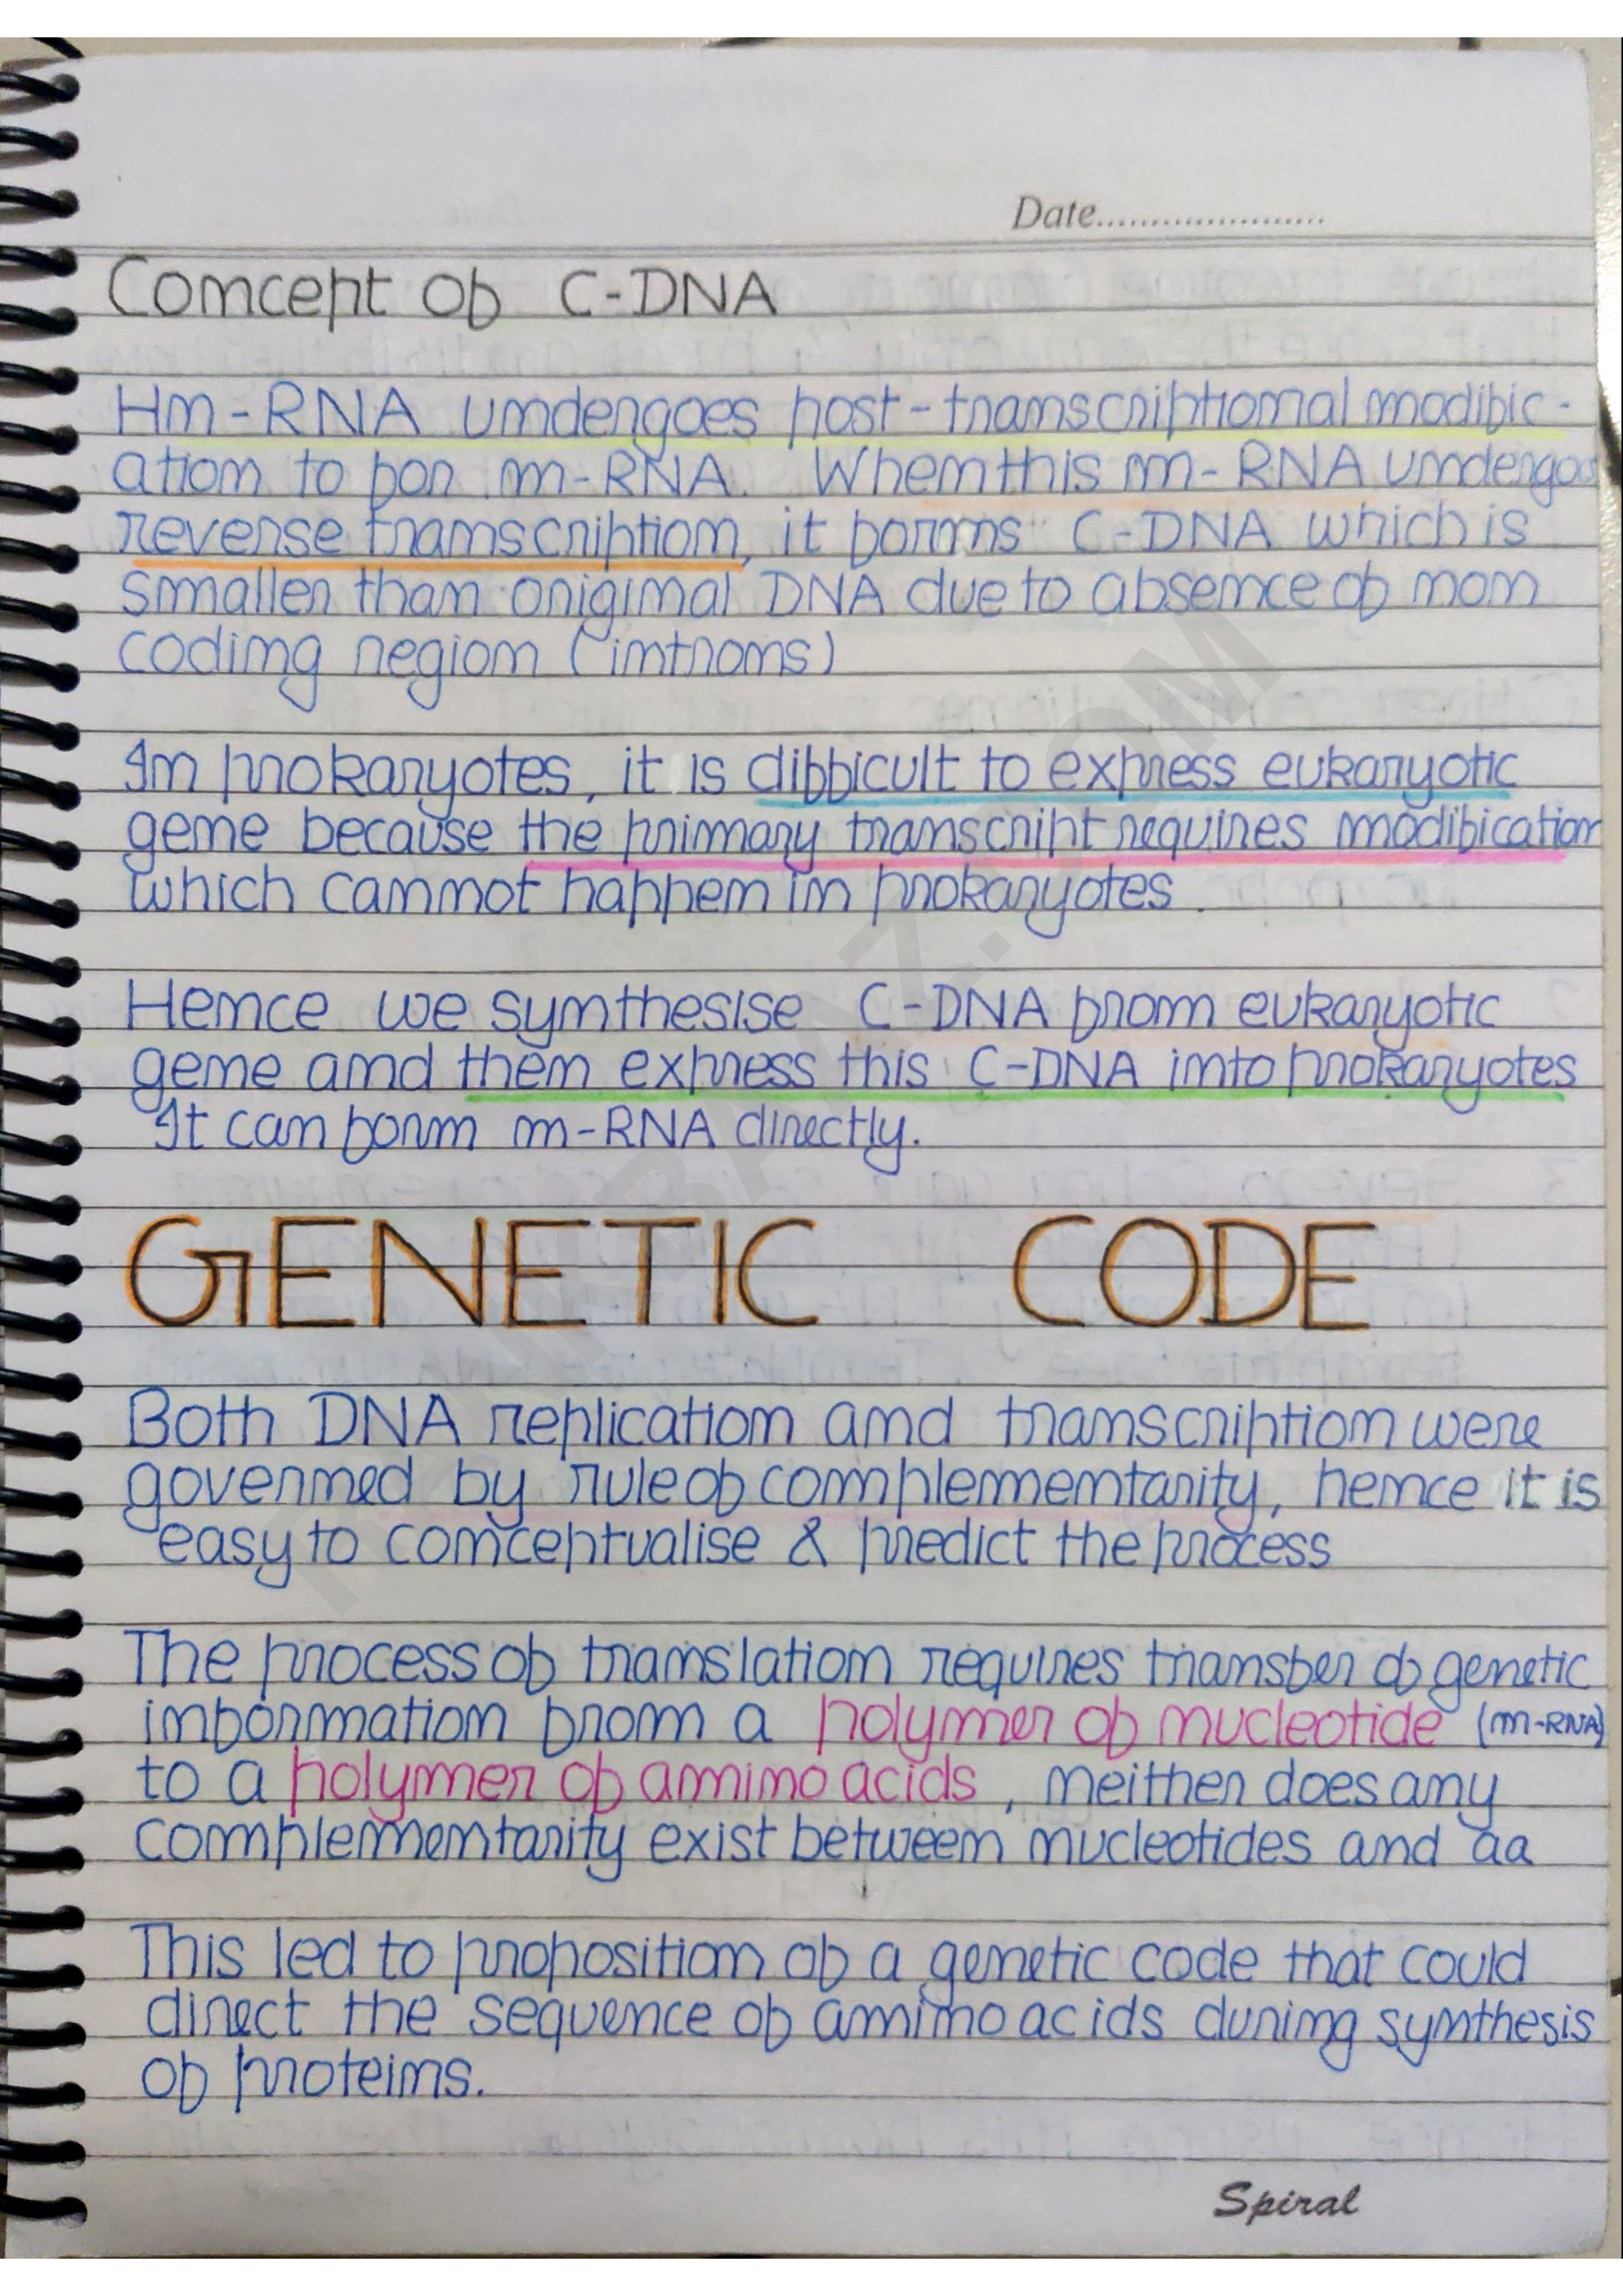 Date......................
Concept of C-DNA
Hn-RNA undergoes post-transcriptional modific-
ation to for m-RNA. When this m-RNA undergoes
reverse transcription, it forms C-DNA which is
smaller than original DNA due to absence of non
coding region (introns)
In prokaryotes, it is difficult to express eukaryotic
gene because the primary transcript requires modification
which cannot happen in prokaryotes.
Hence we synthesise C-DNA from eukaryotic
gene and then express this C-DNA into prokaryotes
It can form m-RNA directly.
GENETIC CODE
Both DNA replication and transcription were
governed by rule of complementarity, hence it is
easy to conceptualise & predict the process
The process of translation requires transfer of genetic
information from a polymer of nucleotide (m-RNA)
to a polymer of amino acids, neither does any
complementarity exist between nucleotides and aa
This led to proposition of a genetic code that could
direct the sequence of amino acids during synthesis
of proteins.
Spiral